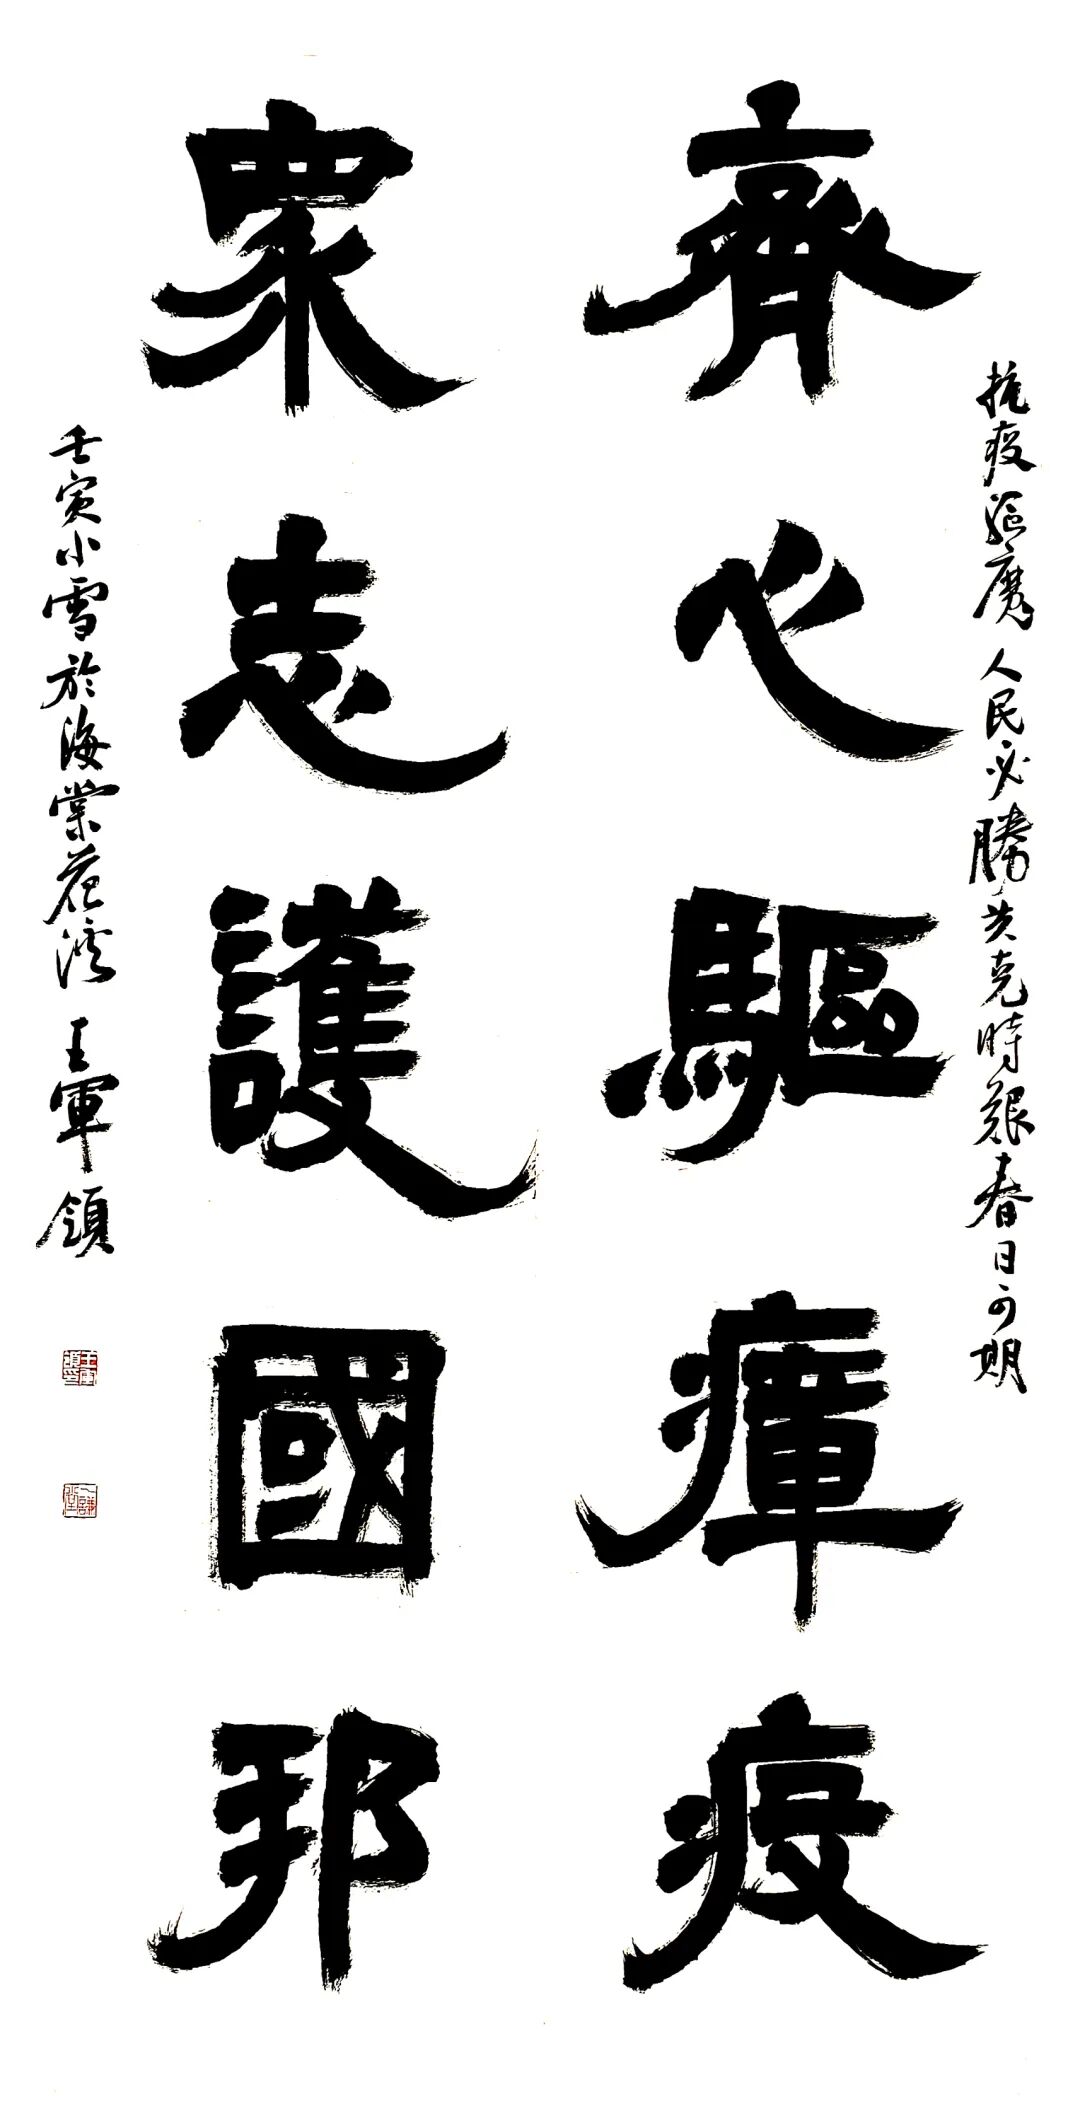 抗疫驅魔人民必勝共克時艱春日可期
齊心驅瘴疫
衆志護國邦
壬寅小雪於海棠花溪王軍領
王軍領印